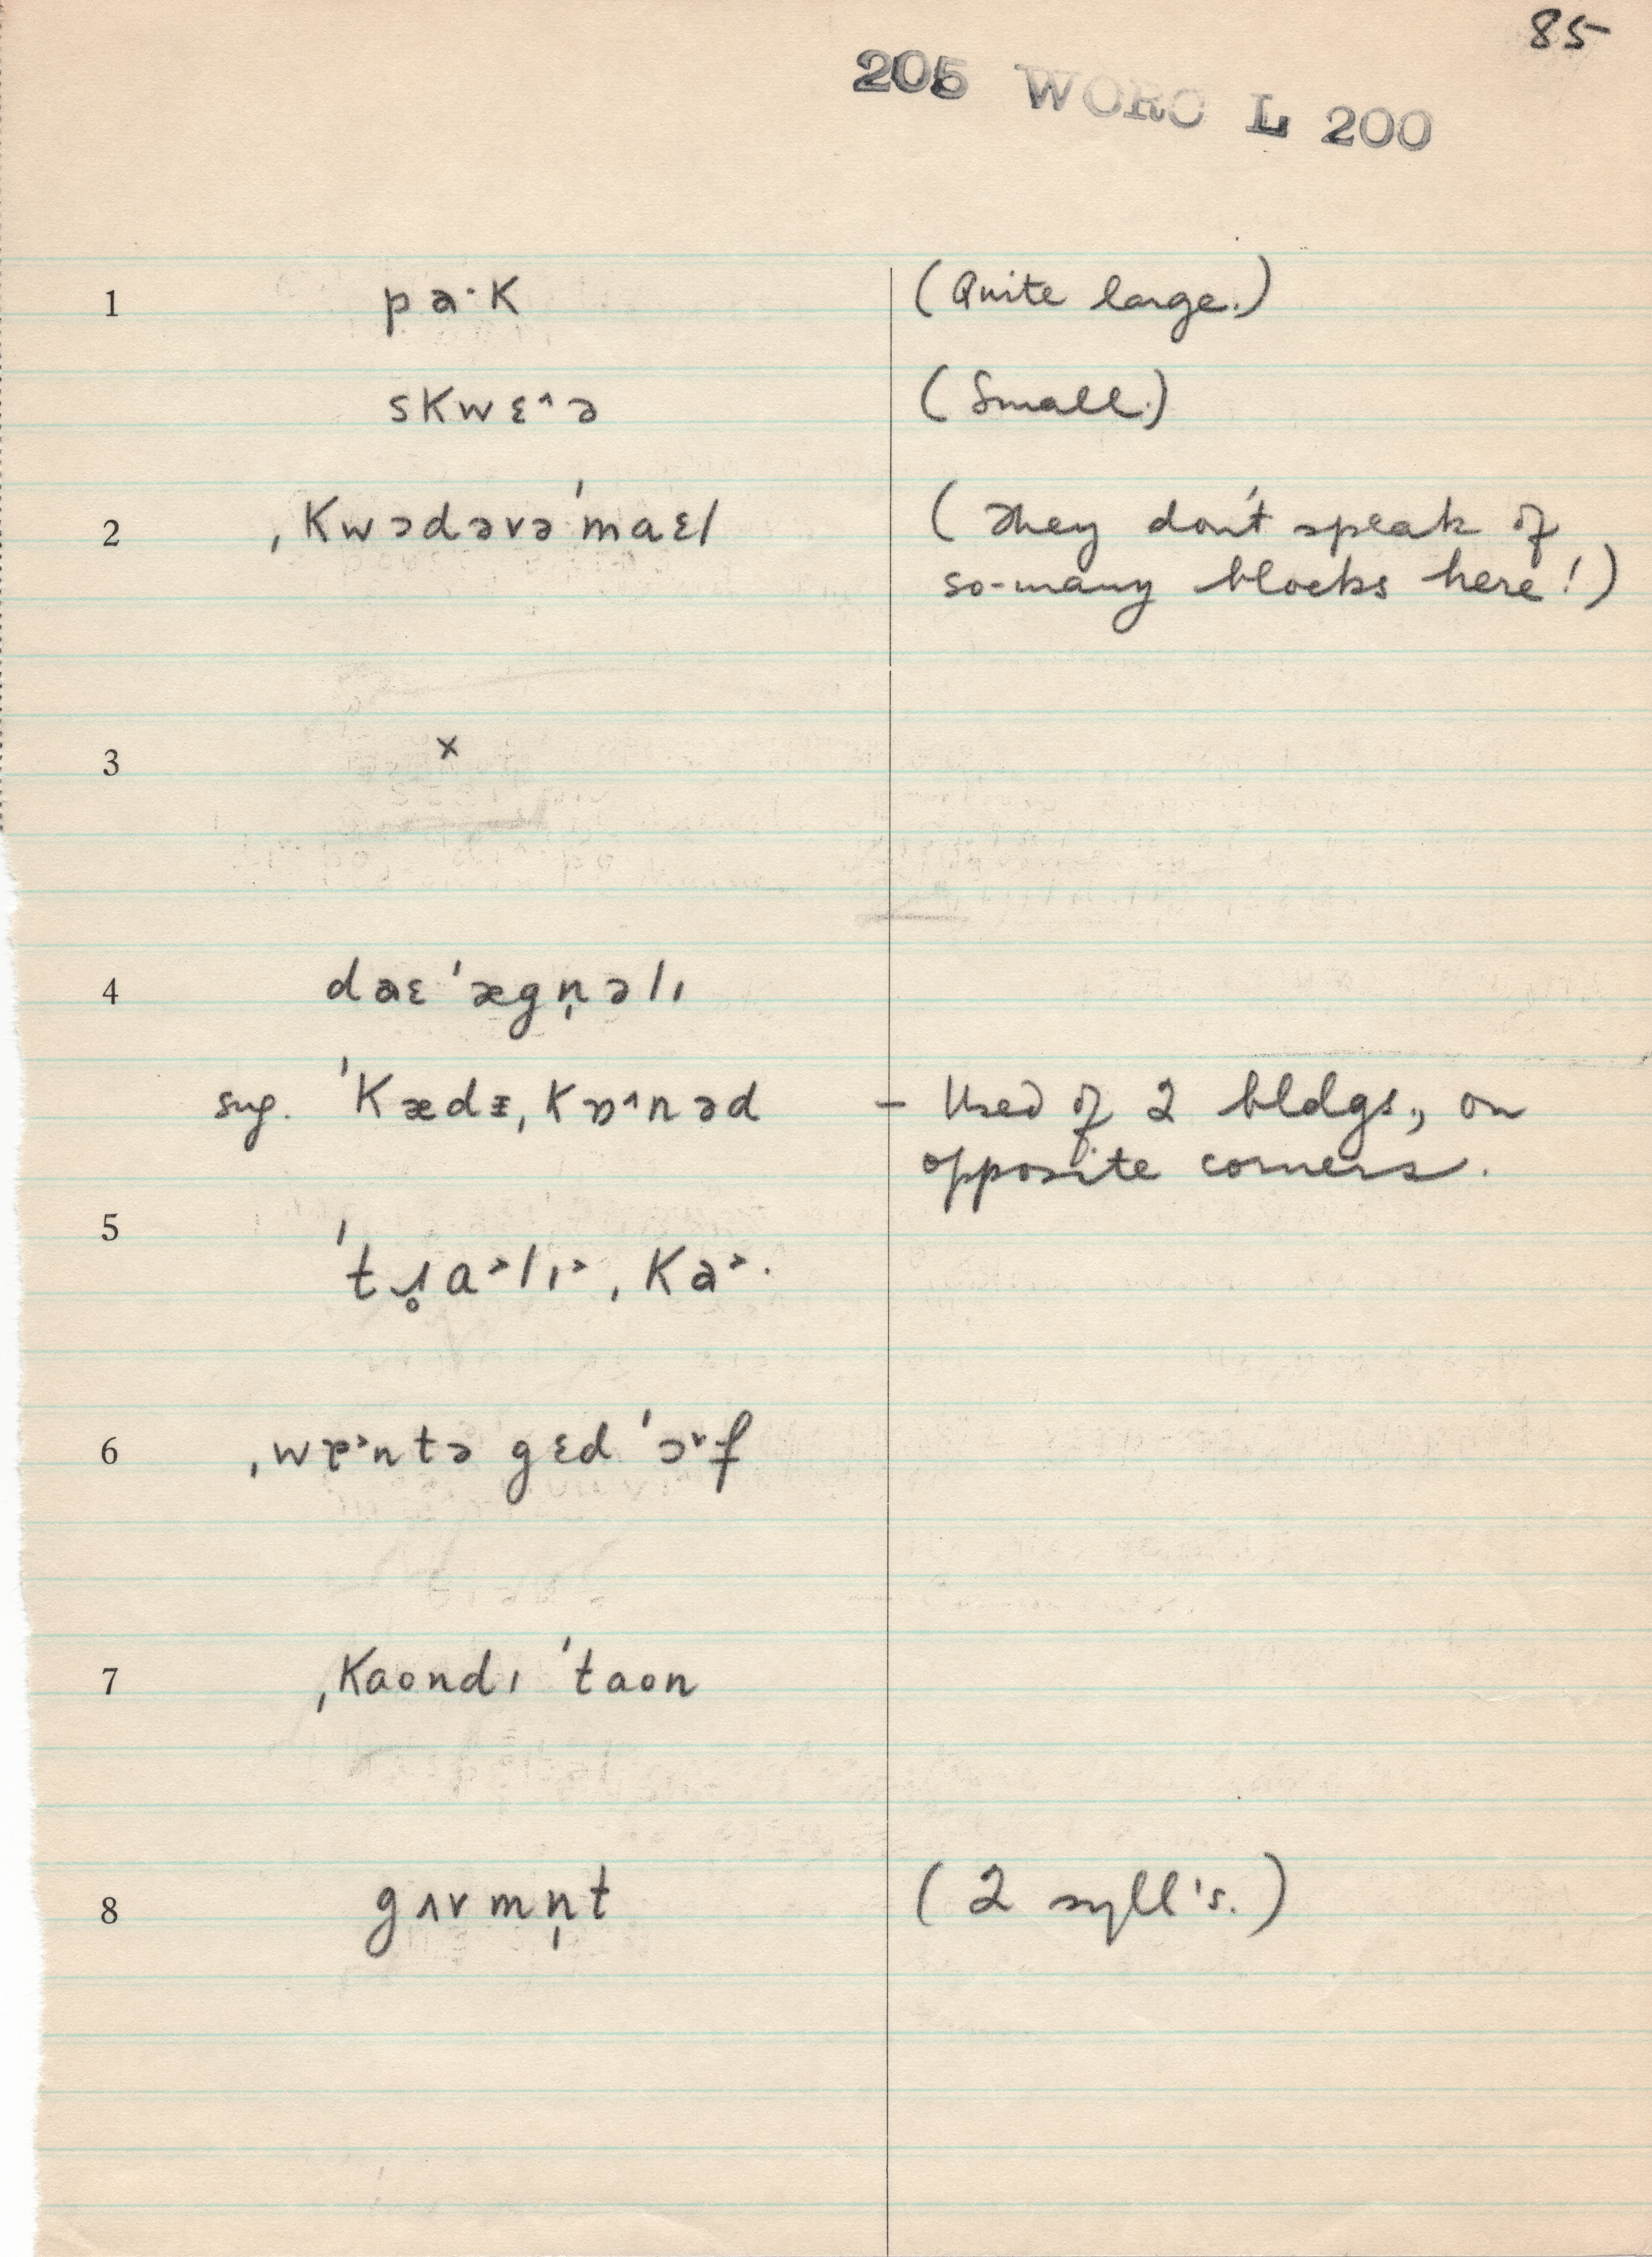 85
205 WORC L 200
1 pa·k (Quite large.)
skwɛ^ə (Small.)
2 ˌkwɔdəvəˈmaɛl (They don't speak of
so-many blocks here!)
3 x
4 daɛˈægn̩əlɪ
sug. ˈkædɪ̵ˌkɒ^nəd – Used of 2 bldgs., on
opposite corners.
5
ˈtɹ̥a˃lɪ˃ˌka˃·
6 ˌwɒ˃ntə gɛd ˈɔ˅f
7 ˌkaondɪ ˈtaon
8 gʌvmn̩t (2 syll's.)